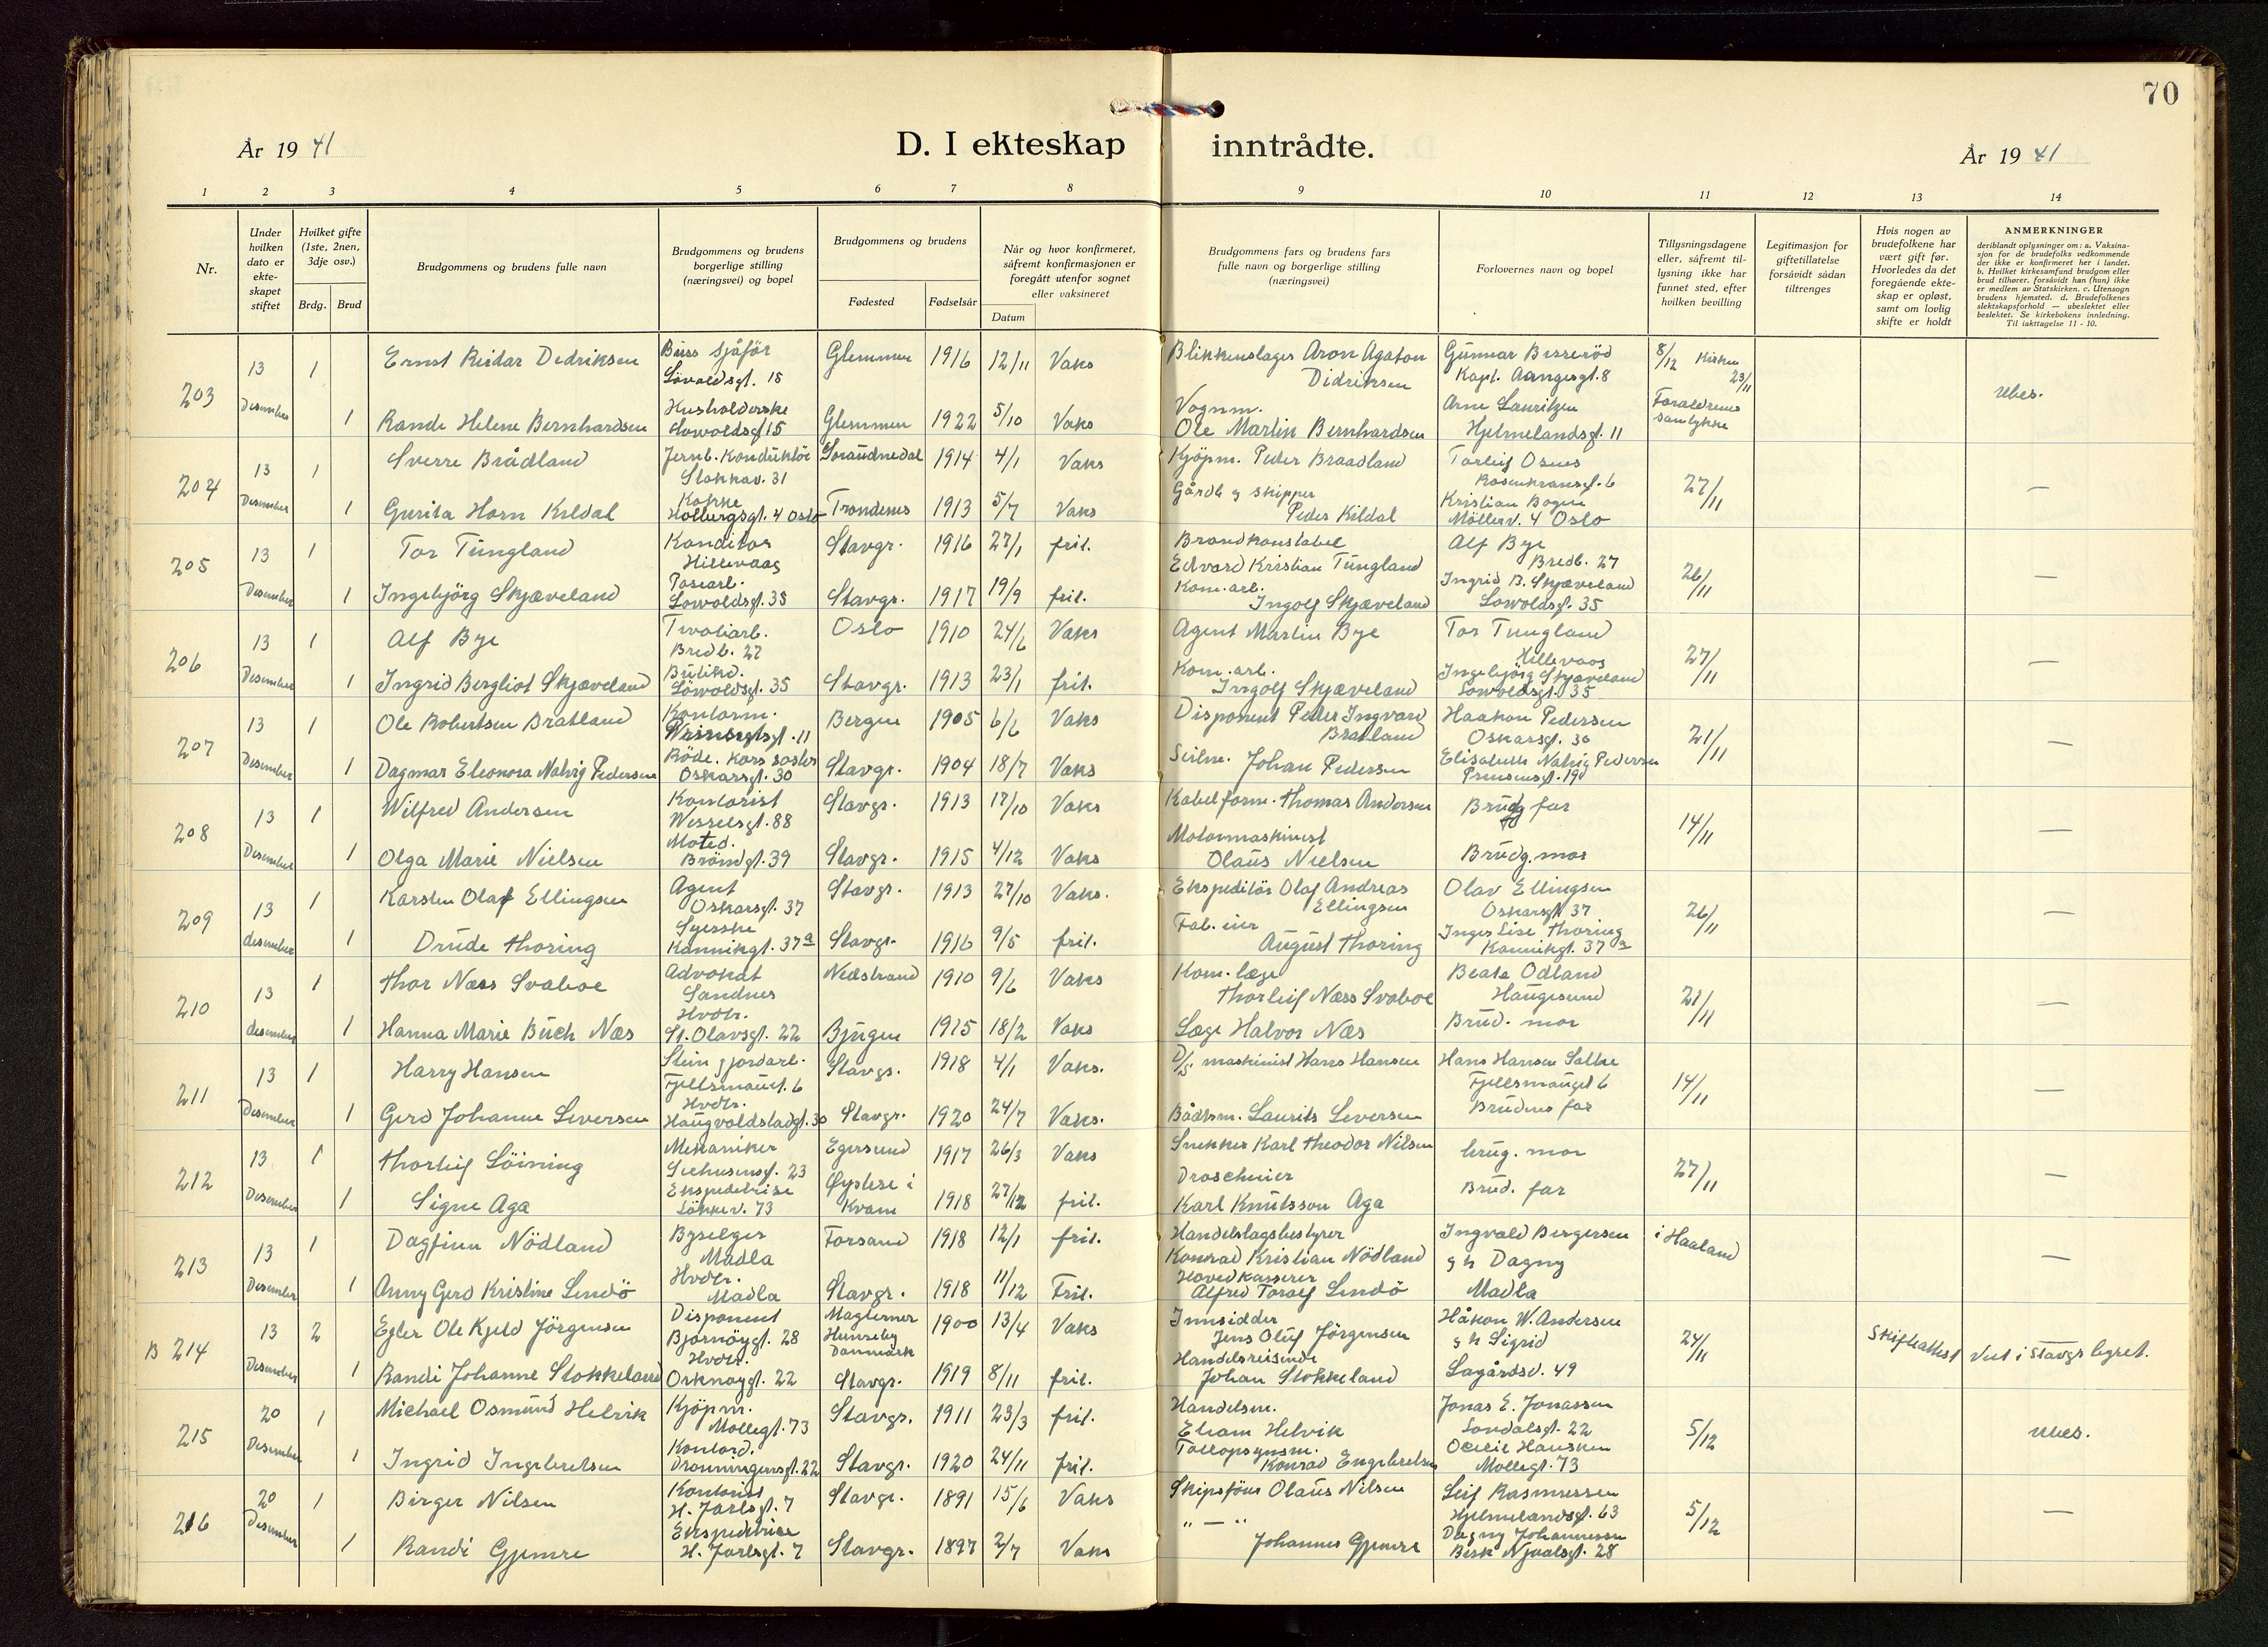 70
År 19 41
D. I ekteskap inntrådte.
År 19 41
1 2 3 4 5 6 7 8 9 10 11 12 13 14
Nr.
Under hvilken dato er ekte- skapet stiftet
Hvilket gifte (1ste, 2nen, 3dje osv.)
Brdg. Brud
Brudgommens og brudens fulle navn
Brudgommens og brudens borgerlige stilling (næringsvei) og bopel
Brudgommens og brudens
Fødested Fødselsår
Når og hvor konfirmeret, såfremt konfirmasjonen er foregått utenfor sognet eller vaksineret
Datum
Brudgommens fars og brudens fars fulle navn og borgerlige stilling (næringsvei)
Forlovernes navn og bopel
Tillysningsdagene eller, såfremt til- lysning ikke har funnet sted, efter hvilken bevilling
Legitimasjon for giftetillatelse forsåvidt sådan tiltrenges
Hvis nogen av brudefolkene har vært gift før. Hvorledes da det foregående ekte- skap er opløst, samt om lovlig skifte er holdt
ANMERKNINGER
deriblandt oplysninger om: a. Vaksina- sjon for de brudefolks vedkommende der ikke er konfirmeret her i landet. b. Hvilket kirkesamfund brudgom eller brud tilhører, forsåvidt han (hun) ikke er medlem av Statskirken. c. Utensogn brudens hjemsted. d. Brudefolkenes slektskapsforhold — ubeslektet eller beslektet. Se kirkebokens innledning. Til iakttagelse 11 - 10.
203 13 Desember 1 Ernst Reidar Dedriksen Buss sjåför Lövoldsgt. 15 Glemmen 1916 12/11 Vaks Blikkenslager Aron Agaton Didriksen Gunnar Bisseröd Kapt. Aangesgt. 8 8/12 Kirken 23/11 Ubes.
1 Rande Helene Bernhardsen Husholderske Lowoldsgt 15 Glemmen 1922 5/10 Vaks Vognm. Ole Martin Bernhardsen Arne Lauritzen Hjelmelandsgt. 11 Foreldrenes samtykke
204 13 Desember 1 Sverre Brådland Jernb. Konduktör Stokkav. 31 1914 4/1 Vaks Kjöpm. Peder Braadland Torleif Osnes Rosenkransgt. 6 27/11 —
1 Gurita Horn Kildal Kokke Holbergsgt. 4 Oslo Trondenes 1913 5/7 Vaks Gårdb og skipper Peder Kildal Kristian Bogen Möllerv. 4 Oslo
205 13 Desember 1 Tor Tungland Konditor Hillevaag Stavgr. 1916 27/1 fril. Brandkonstabel Edvard Kristian Tungland Alf Bye Bredb. 27 26/11 —
1 Ingebjörg Skjæveland Posearb. Lowoldsgt. 35 Stavgr. 1917 19/9 fril. Kom. arb. Ingolf Skjæveland Ingrid B. Skjæveland Lowoldsgt. 35
206 13 Desember 1 Alf Bye Tivoliarb. Bredb. 27 Oslo 1910 24/6 Vaks Agent Martin Bye Tor Tungland Hillevaag 27/11 —
1 Ingrid Bergliot Skjæveland Butikd. Löwoldsgt. 35 Stavgr. 1913 23/1 fril. Kom. arb. Ingolf Skjæveland Ingebjörg Skjæveland Lowoldsgt. 35
207 13 Desember 1 Ole Robertsen Bratland Kontorm. Bergen 1905 6/6 Vaks Disponent Peder Ingvard Bratland Haakon Pedersen Oskarsgt. 30 21/11 —
1 Dagmar Eleonora Natvig Pedersen Röde. Kors söster Oskarsgt. 30 Stavgr. 1904 18/7 Vaks Seilm. Johan Pedersen Elisabeth Natvig Pedersen Prinsensgt. 19
208 13 Desember 1 Wilfred Andersen Kontorist Wesselsgt. 88 Stavgr. 1913 17/10 Vaks Kabelform. Thomas Andersen Brudg far 14/11 —
1 Olga Marie Nielsen Moted. Bröndgt. 39 Stavgr. 1915 4/12 Vaks Motormaskinist Olaus Nielsen Brudg. mor
209 13 desember 1 Karsten Olaf Ellingsen Agent Oskarsgt. 37 Stavgr. 1913 27/10 Vaks. Ekspeditör Olaf Andreas Ellingsen Olav Ellingsen Oskarsgt 37 26/11 —
1 Drude Thoring Syerske Kannikgt. 37a Stavgr. 1916 9/5 fril. Fab. eier August Thoring Inger Lise Thoring Kannikgt. 37a
210 13 desember 1 Thor Næss Svaboe Advokat Sandnes Nedstrand 1910 9/6 Vaks Kom. læge Thorleif Næss Svaboe Beate Odland Haugesund 21/11 —
1 Hanna Marie Buch Næs Hvdtr. St. Olavsgt. 22 Bjugen 1915 18/2 Vaks Læge Halvor Næs Brud. mor
211 13 Desember 1 Harry Hansen Stein g jordarb. Fjellsmauet. 6 Stavgr. 1918 4/1 Vaks. D/S maskinist Hans Hansen Hans Hansen Salte Fjellsmauet 6 14/11 —
1 Gerd Johanne Seversen Hvdtr. Haugvoldstadgt. 30 Stavgr. 1920 24/7 Vaks. Bådsm. Laurits Seversen Brudens far
212 13 Desember 1 Thorleif Löining Mekaniker Seehusensgt. 23 Egersund 1917 26/3 Vaks Snekker Karl Theodor Nilsen brug. mor 27/11 —
1 Signe Aga Ekspeditrise Lökkev. 73 Øystese i Kvam 1918 27/12 fril. Droscheeier Karl Knutsson Aga Brud. far
213 13 Desember 1 Dagfinn Nödland Byselger Madla Forsand 1918 12/1 fril. Handelslagsbestyrer Konrad Kristian Nödland Ingvald Bergersen i Haaland —
1 Anny Gerd Kristine Lendö Hvdtr. Madla Stavgr. 1918 11/12 Fril. Hovedkasserer Alfred Toralf Lendö g h Dagny Madla
B 214 13 Desember 2 Ejler Ole Kjeld Jörgensen Disponent Bjornöygt. 28 Danmark 1900 13/4 Vaks Innsidder Jens Oluf Jörgensen Håkon W. Andersen 24/11 Skifteattest Viet i Stavgs legret.
1 Randi Johanne Stokkeland Hvdtr. Orknøygt. 22 Stavgr. 1919 8/11 fril. Handelsreisende Johan Stokkeland g h Sigrid Lagårdsv. 49
215 20 Desember 1 Michael Osmund Helvik Kjöpm. Mollegt. 73 Stavgr. 1911 23/3 fril. Handelsm. Eliam Helvik Jonas E. Jonassen Sandalsgt. 22 5/12 Ubes.
1 Ingrid Ingebretsen Kontord. Dronningensgt. 22 Stavgr. 1920 24/11 fril. Tollopsynsm. Konrad Engebretsen Oecilie Hansken Mollegt. 73
216 20 Desember 1 Birger Nilsen Kontorist H. Jarlsgt. 7 Stavgr. 1891 15/6 Vaks Skipsförer Olaus Nilsen Leif Rasmussen Hjelmelandsgt. 63 5/12 —
1 Randi Gjemre Ekspeditrise H. Jarlsgt. 7 Stavgr. 1897 2/7 Vaks " — " Johannes Gjemre Dagny Johannessen Bersk Njaalsgt. 28